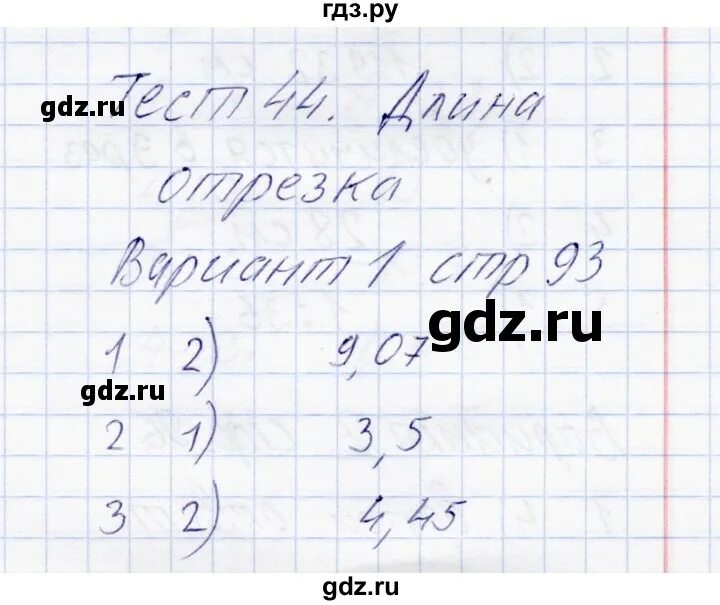 гдз.ру
Тест 44. Длина
gdz.ru
отрезка
Вариант 1 стр 93
gdz.ru
1 2) 9,07
gdz.ru
2 1) 3,5
3 2) 4,45
gdz.ru